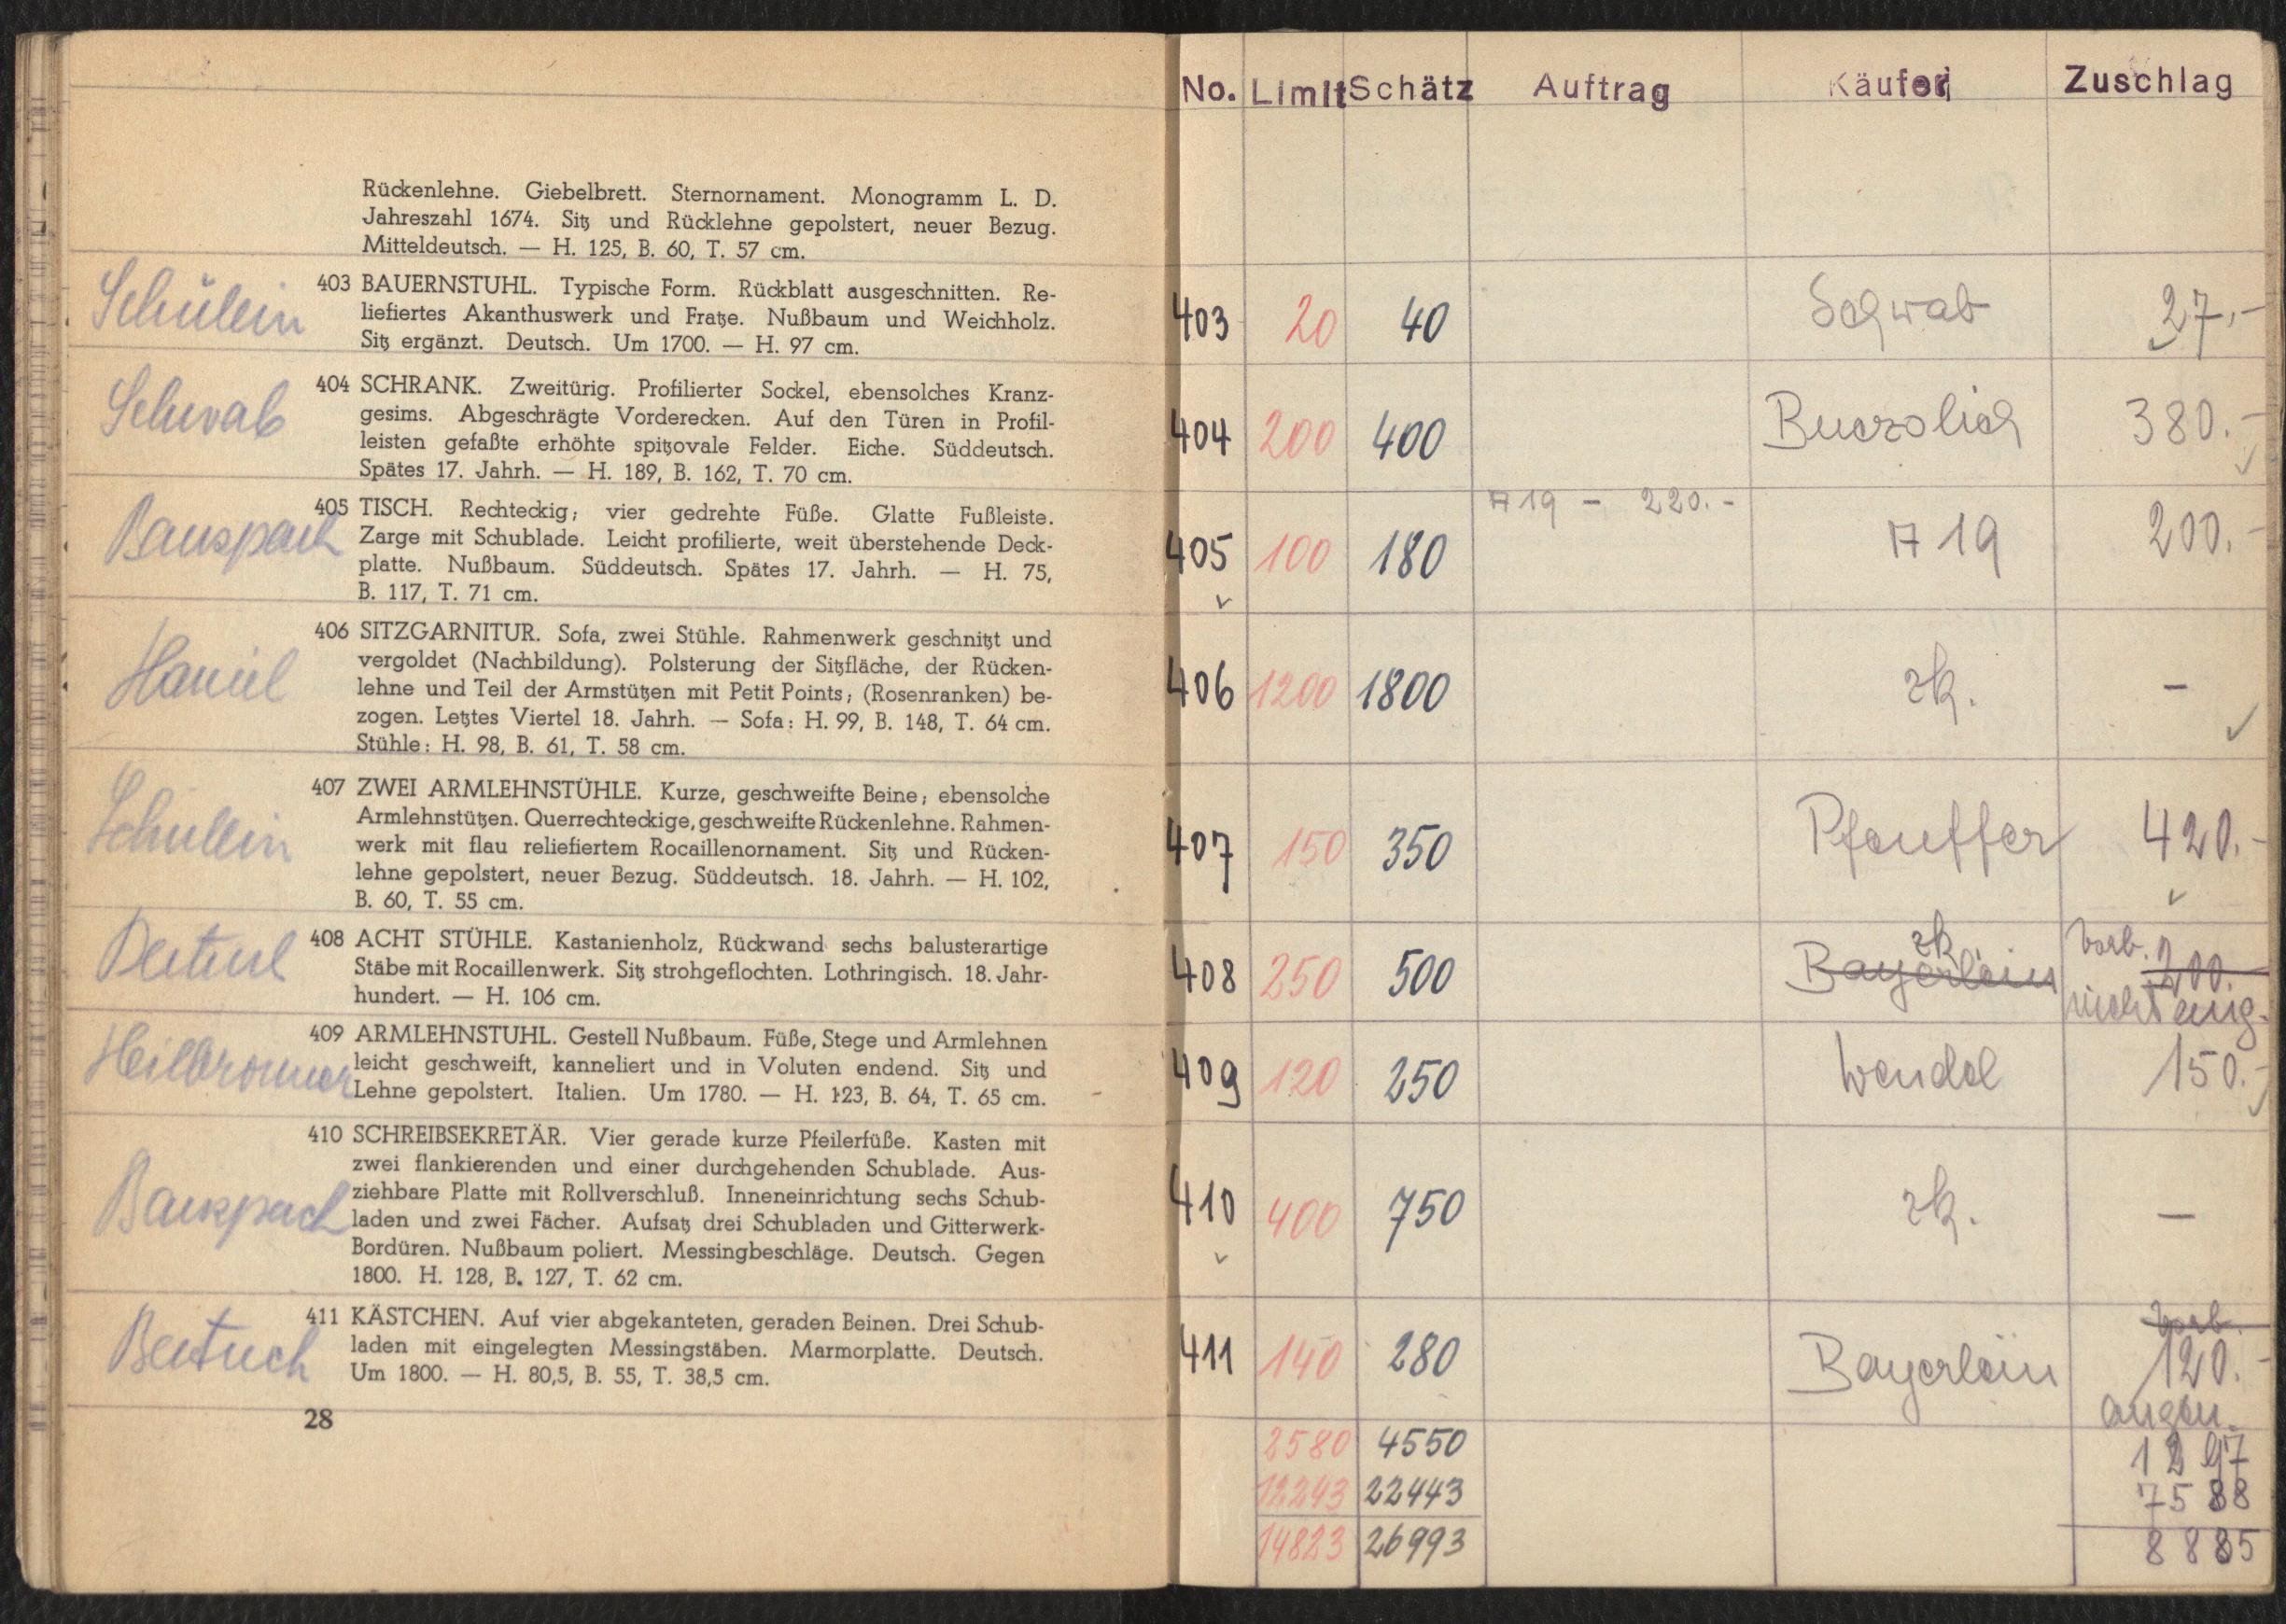 Rückenlehne. Giebelbrett. Sternornament. Monogramm L. D.
Jahreszahl 1674. Sitz und Rücklehne gepolstert, neuer Bezug.
Mitteldeutsch. — H. 125, B. 60, T. 57 cm.
Schülein
403 BAUERNSTUHL. Typische Form. Rückblatt ausgeschnitten. Re-
liefiertes Akanthuswerk und Fratze. Nußbaum und Weichholz.
Sitz ergänzt. Deutsch. Um 1700. — H. 97 cm.
Schwab
404 SCHRANK. Zweitürig. Profilierter Sockel, ebensolches Kranz-
gesims. Abgeschrägte Vorderecken. Auf den Türen in Profil-
leisten gefaßte erhöhte spitzovale Felder. Eiche. Süddeutsch.
Spätes 17. Jahrh. — H. 189, B. 162, T. 70 cm.
Bauspach
405 TISCH. Rechteckig; vier gedrehte Füße. Glatte Fußleiste.
Zarge mit Schublade. Leicht profilierte, weit überstehende Deck-
platte. Nußbaum. Süddeutsch. Spätes 17. Jahrh. — H. 75,
B. 117, T. 71 cm.
Haniel
406 SITZGARNITUR. Sofa, zwei Stühle. Rahmenwerk geschnitzt und
vergoldet (Nachbildung). Polsterung der Sitzfläche, der Rücken-
lehne und Teil der Armstützen mit Petit Points; (Rosenranken) be-
zogen. Letztes Viertel 18. Jahrh. — Sofa: H. 99, B. 148, T. 64 cm.
Stühle: H. 98, B. 61, T. 58 cm.
Schülein
407 ZWEI ARMLEHNSTÜHLE. Kurze, geschweifte Beine; ebensolche
Armlehnstützen. Querrechteckige, geschweifte Rückenlehne. Rahmen-
werk mit flau reliefiertem Rocaillenornament. Sitz und Rücken-
lehne gepolstert, neuer Bezug. Süddeutsch. 18. Jahrh. — H. 102,
B. 60, T. 55 cm.
408 ACHT STÜHLE. Kastanienholz, Rückwand sechs balusterartige
Stäbe mit Rocaillenwerk. Sitz strohgeflochten. Lothringisch. 18. Jahr-
hundert. — H. 106 cm.
Heilbronner
409 ARMLEHNSTUHL. Gestell Nußbaum. Füße, Stege und Armlehnen
leicht geschweift, kanneliert und in Voluten endend. Sitz und
Lehne gepolstert. Italien. Um 1780. — H. 123, B. 64, T. 65 cm.
Bauspach
410 SCHREIBSEKRETÄR. Vier gerade kurze Pfeilerfüße. Kasten mit
zwei flankierenden und einer durchgehenden Schublade. Aus-
ziehbare Platte mit Rollverschluß. Inneneinrichtung sechs Schub-
laden und zwei Fächer. Aufsatz drei Schubladen und Gitterwerk-
Bordüren. Nußbaum poliert. Messingbeschläge. Deutsch. Gegen
1800. H. 128, B. 127, T. 62 cm.
411 KÄSTCHEN. Auf vier abgekanteten, geraden Beinen. Drei Schub-
laden mit eingelegten Messingstäben. Marmorplatte. Deutsch.
Um 1800. — H. 80,5, B. 55, T. 38,5 cm.
28
No. Limit Schätz Auftrag Käufer Zuschlag
403 20 40 Schwab 27,-
404 200 400 380.-
19 - 220.-
405 100 180 19 200.-
406 1200 1800 zk. -
407 150 350 Pfeuffer 420.-
zk vorb.
408 250 500 Bayerlein 200.
nicht eng.
409 120 250 Wendel 150.-
410 400 750 zk. —
vorb.
411 140 280 Bayerlein 120.-
angen.
2580 4550 1297
12243 22443 7588
14823 26993 8885